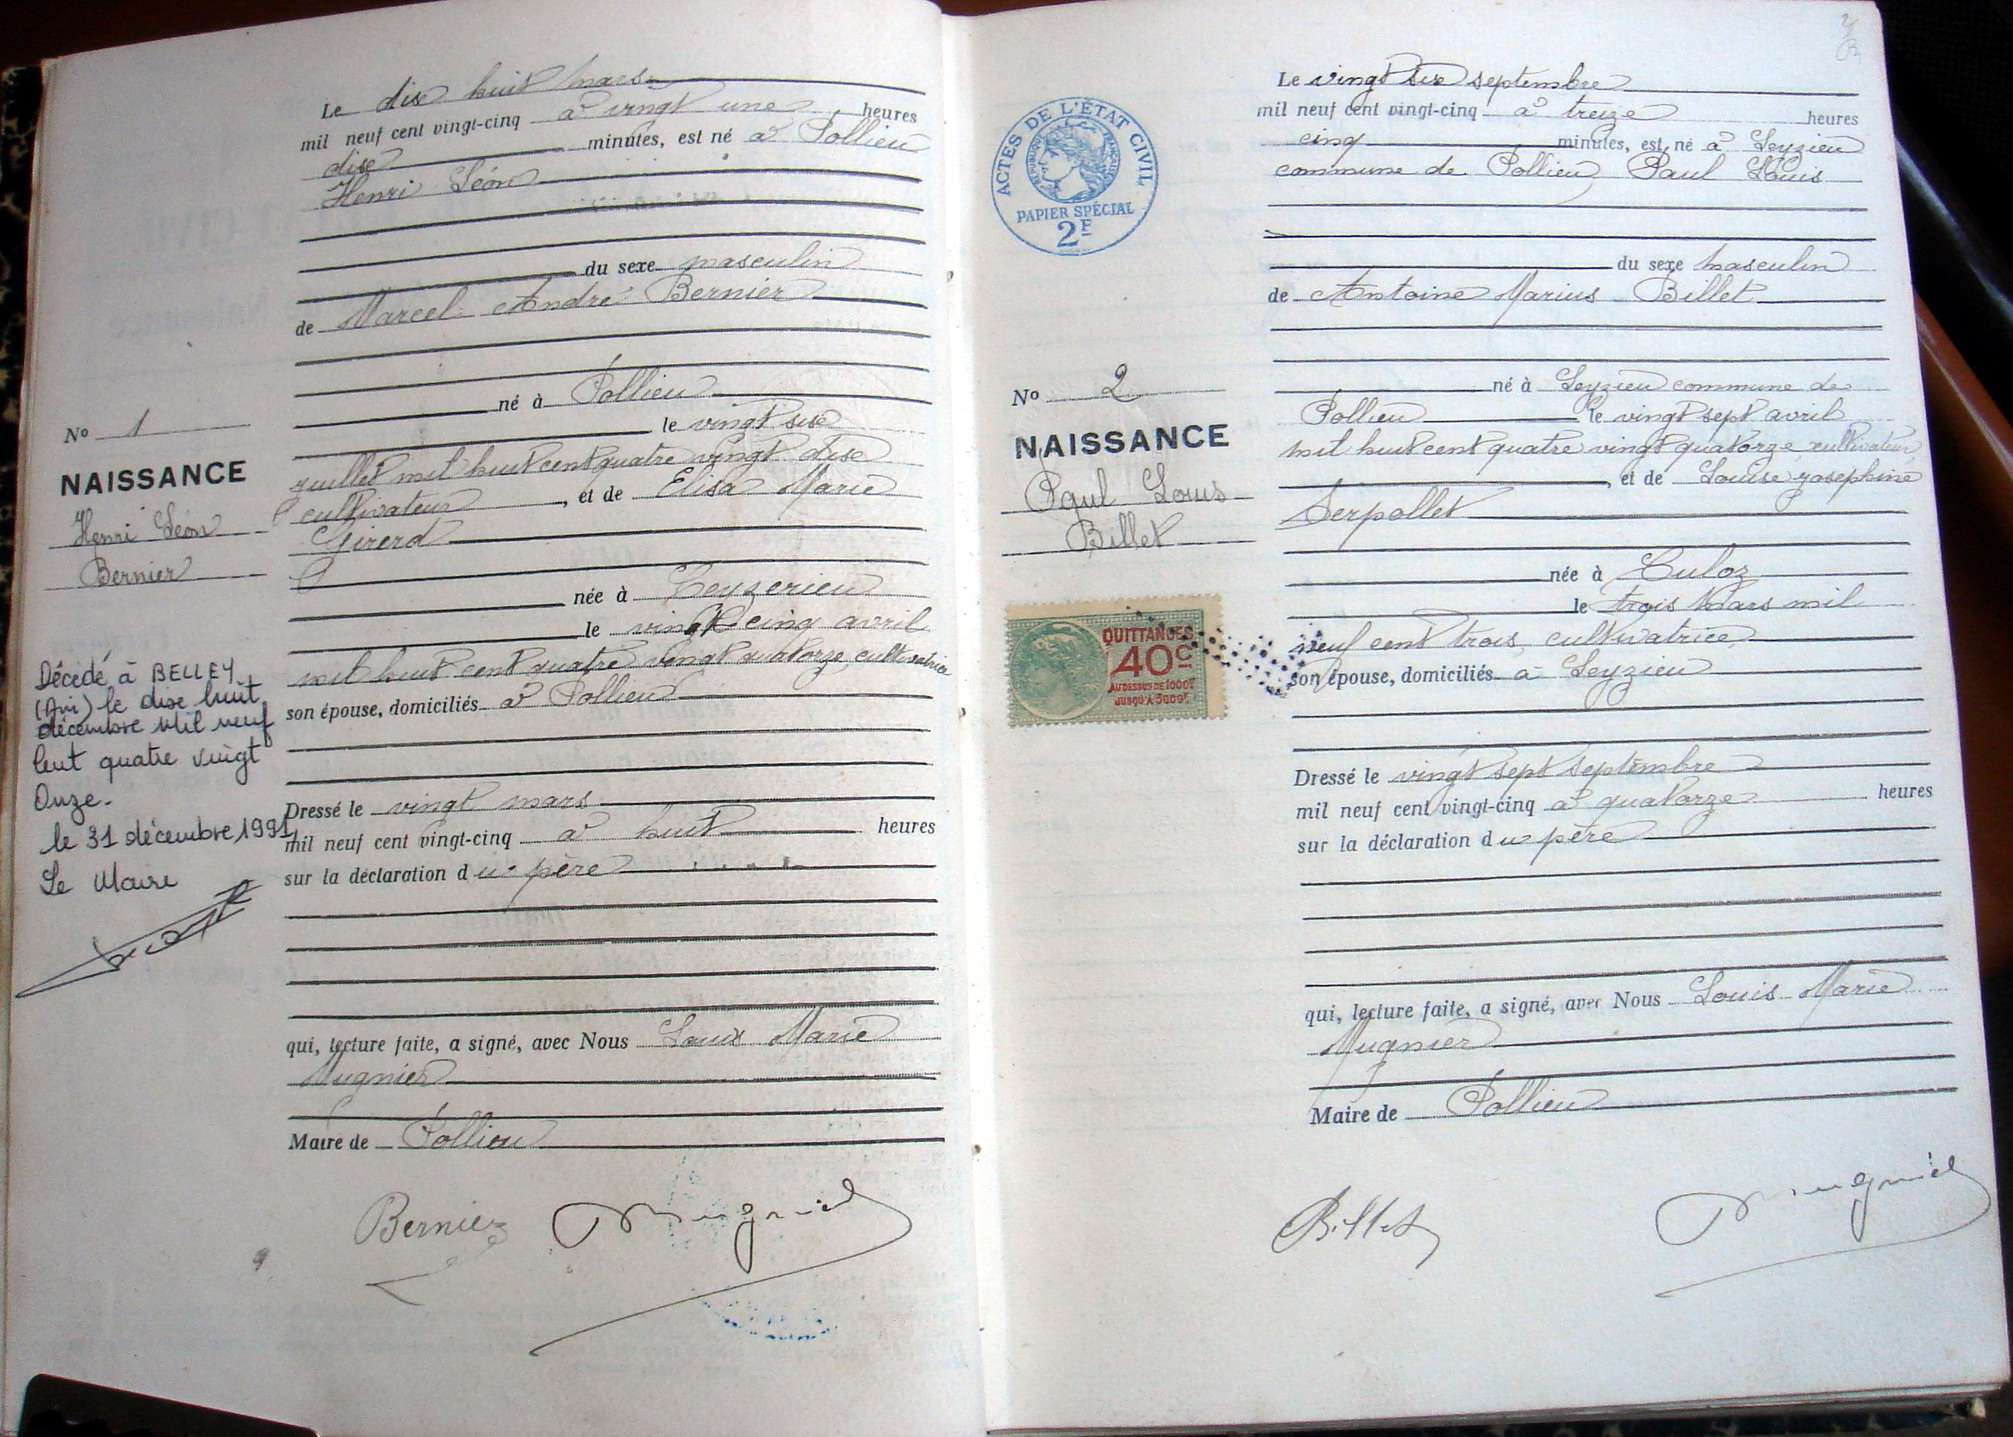 Le dix huit mars
mil neuf cent vingt-cinq à vingt une heures
dix minutes, est né à Pollieu
Henri Léon
du sexe masculin
de Marcel André Bernier
né à Pollieu
le vingt six
juillet mil huit cent quatre vingt dix
cultivateur, et de Elisa Marie
Girerd
née à Ceyzerieu
le vingt cinq avril
mil huit cent quatre vingt quatorze, cultivatrice
son épouse, domiciliés à Pollieu
Dressé le vingt mars
mil neuf cent vingt-cinq à huit heures
sur la déclaration du père
qui, lecture faite, a signé, avec Nous Louis Marie
Mugnier
Maire de Pollieu
Bernier Mugnier
No 1
NAISSANCE
Henri Léon
Bernier
Décédé à BELLEY
(Ain) le dix huit
décembre mil neuf
cent quatre vingt
Onze.
le 31 décembre 1991
Le Maire
2
Le vingt six septembre
mil neuf cent vingt-cinq à treize heures
cinq minutes, est né à Leyzieu
commune de Pollieu Paul Louis
du sexe masculin
de Antoine Marius Billet
né à Leyzieu commune de
Pollieu le vingt sept avril
mil huit cent quatre vingt quatorze cultivateur,
, et de Louise Josephine
Serpollet
née à Culoz
le trois mars mil
neuf cent trois, cultivatrice
son épouse, domiciliés à Leyzieu
Dressé le vingt sept septembre
mil neuf cent vingt-cinq à quatorze heures
sur la déclaration du père
qui, lecture faite, a signé, avec Nous Louis Marie
Mugnier
Maire de Pollieu
Billet Mugnier
ACTES DE L'ÉTAT CIVIL
RÉPUBLIQUE FRANÇAISE
PAPIER SPÉCIAL
2F
No 2
NAISSANCE
Paul Louis
Billet
QUITTANCES
40C
AU DESSUS DE 1000F
JUSQU'À 3000F